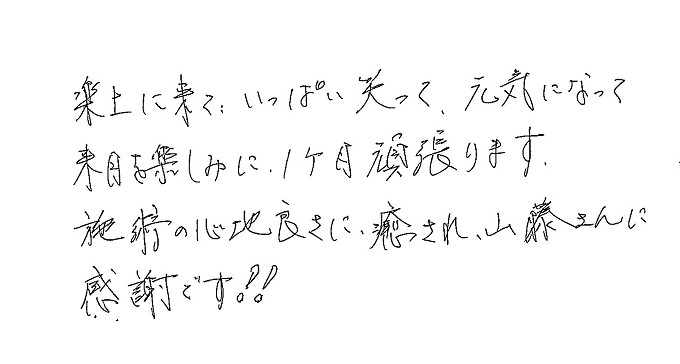 楽上に来て、いっぱい笑って、元気になって
来月を楽しみに、1ヶ月頑張ります。
施術の心地良さに、癒され、山藤さんに
感謝です!!